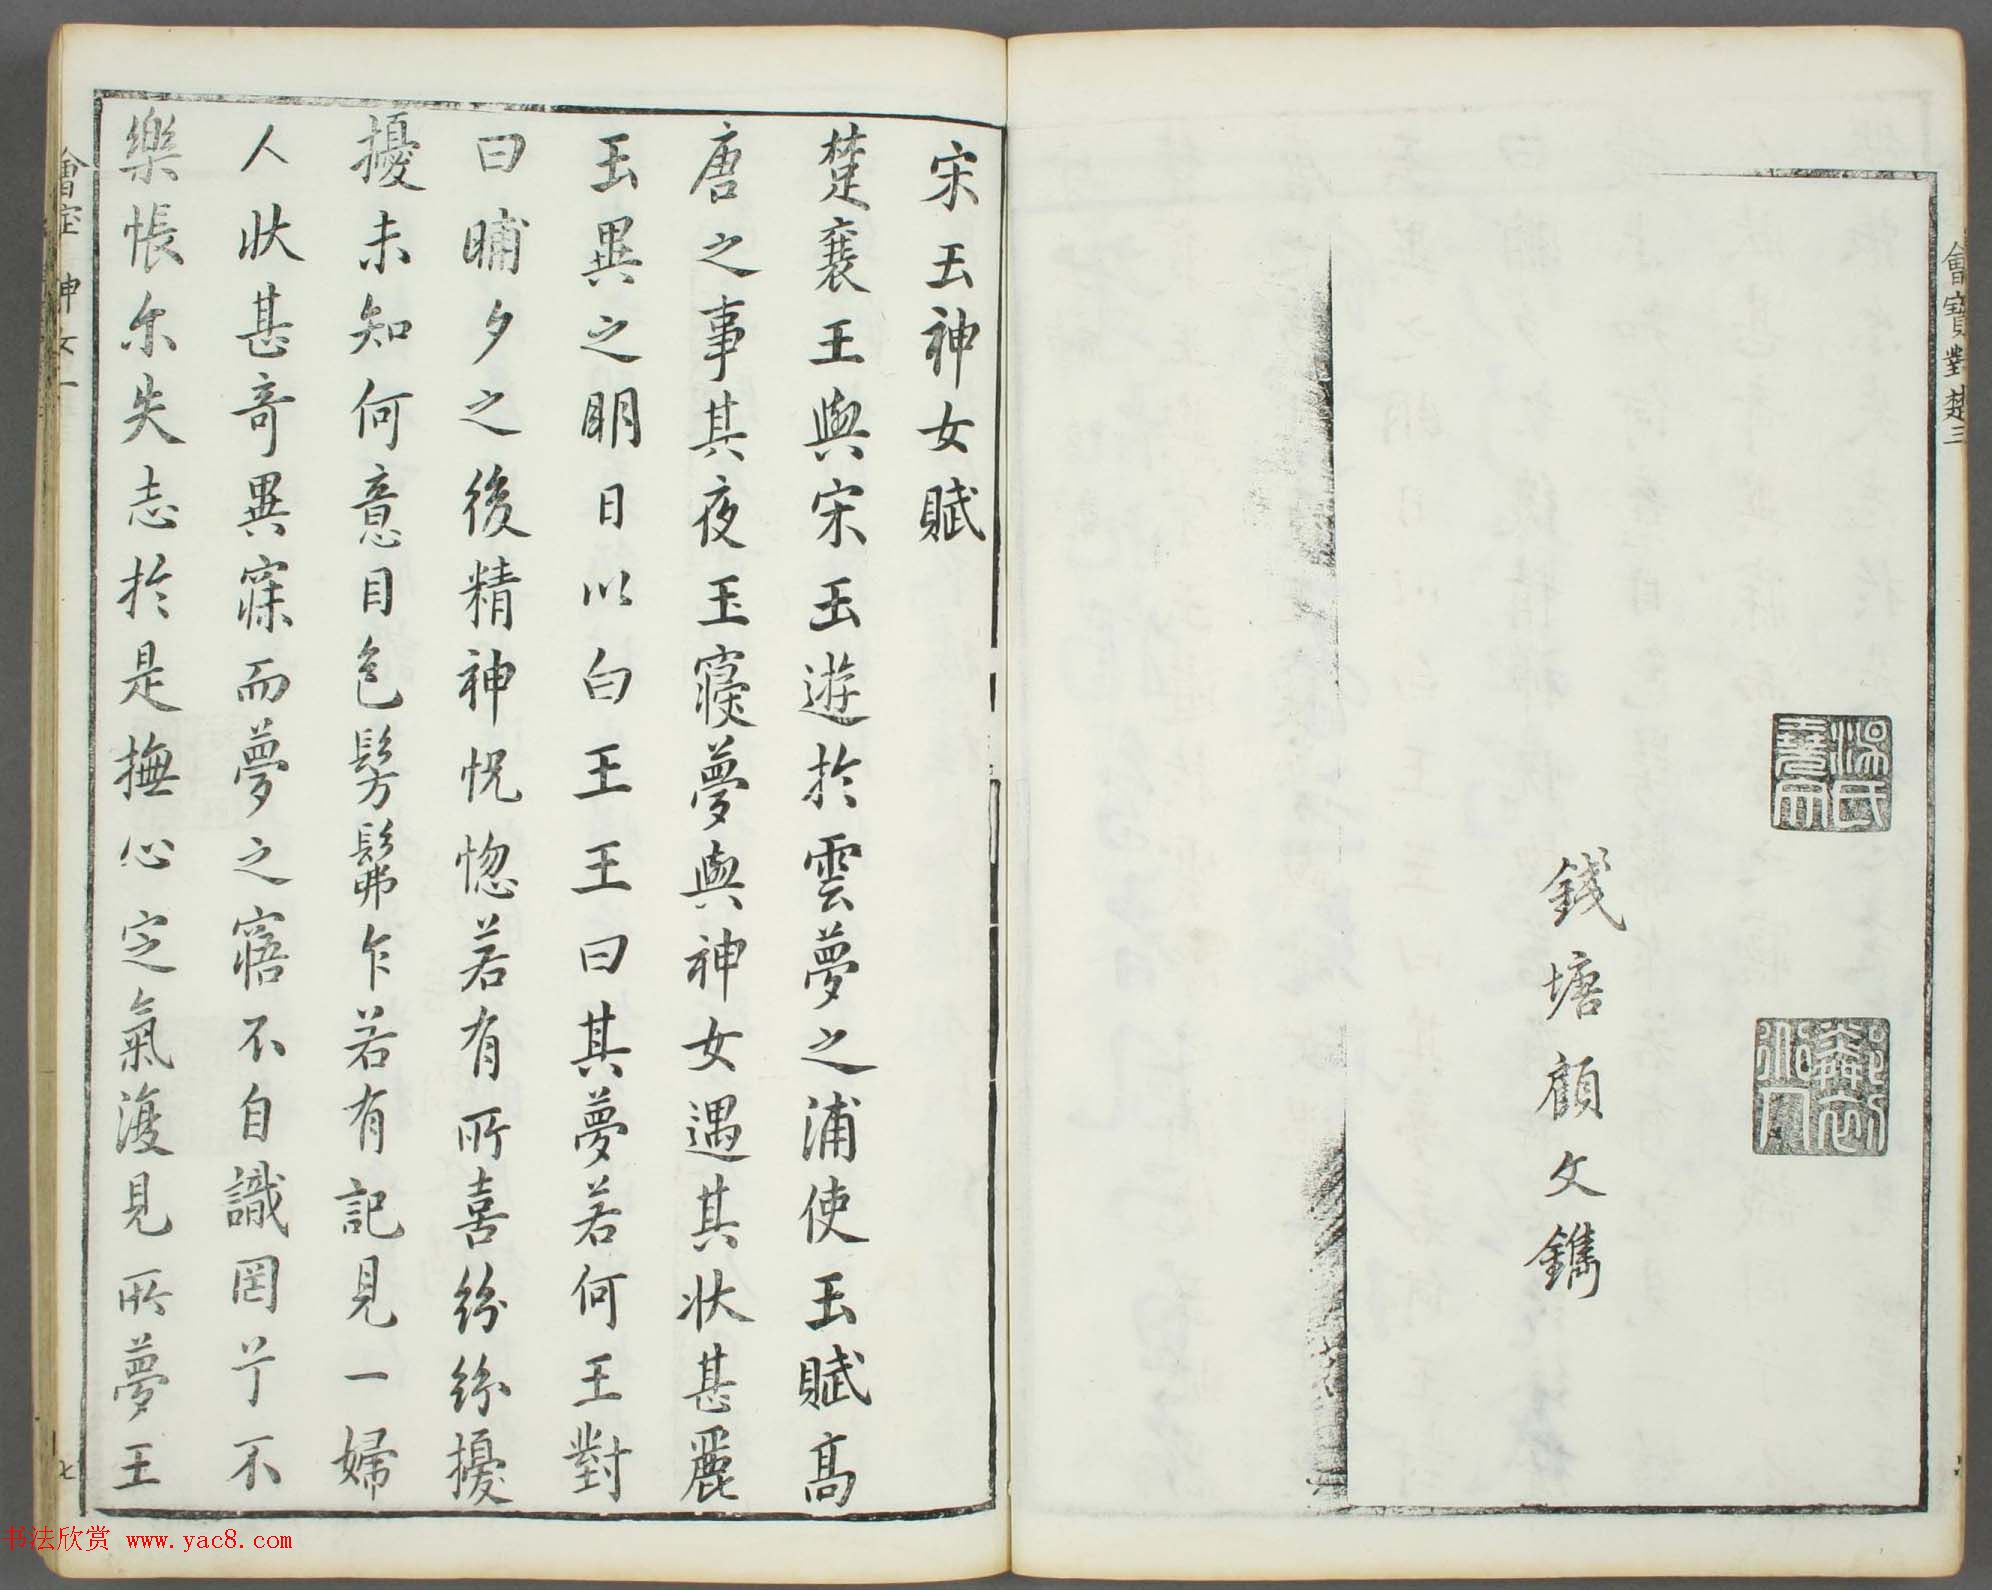 會寶對楚三
錢塘顧文鐫
宋玉神女賦
楚襄王與宋玉遊於雲夢之浦使玉賦高
唐之事其夜玉寢夢與神女遇其狀甚麗
玉異之明日以白王王曰其夢若何玉對
曰晡夕之後精神怳惚若有所喜紛紛擾
擾未知何意目色髣髴乍若有記見一婦
人狀甚奇異寐而夢之寤不自識罔兮不
樂悵尔失志於是撫心定氣復見所夢王
神女一
七
书法欣赏 www.yac8.com